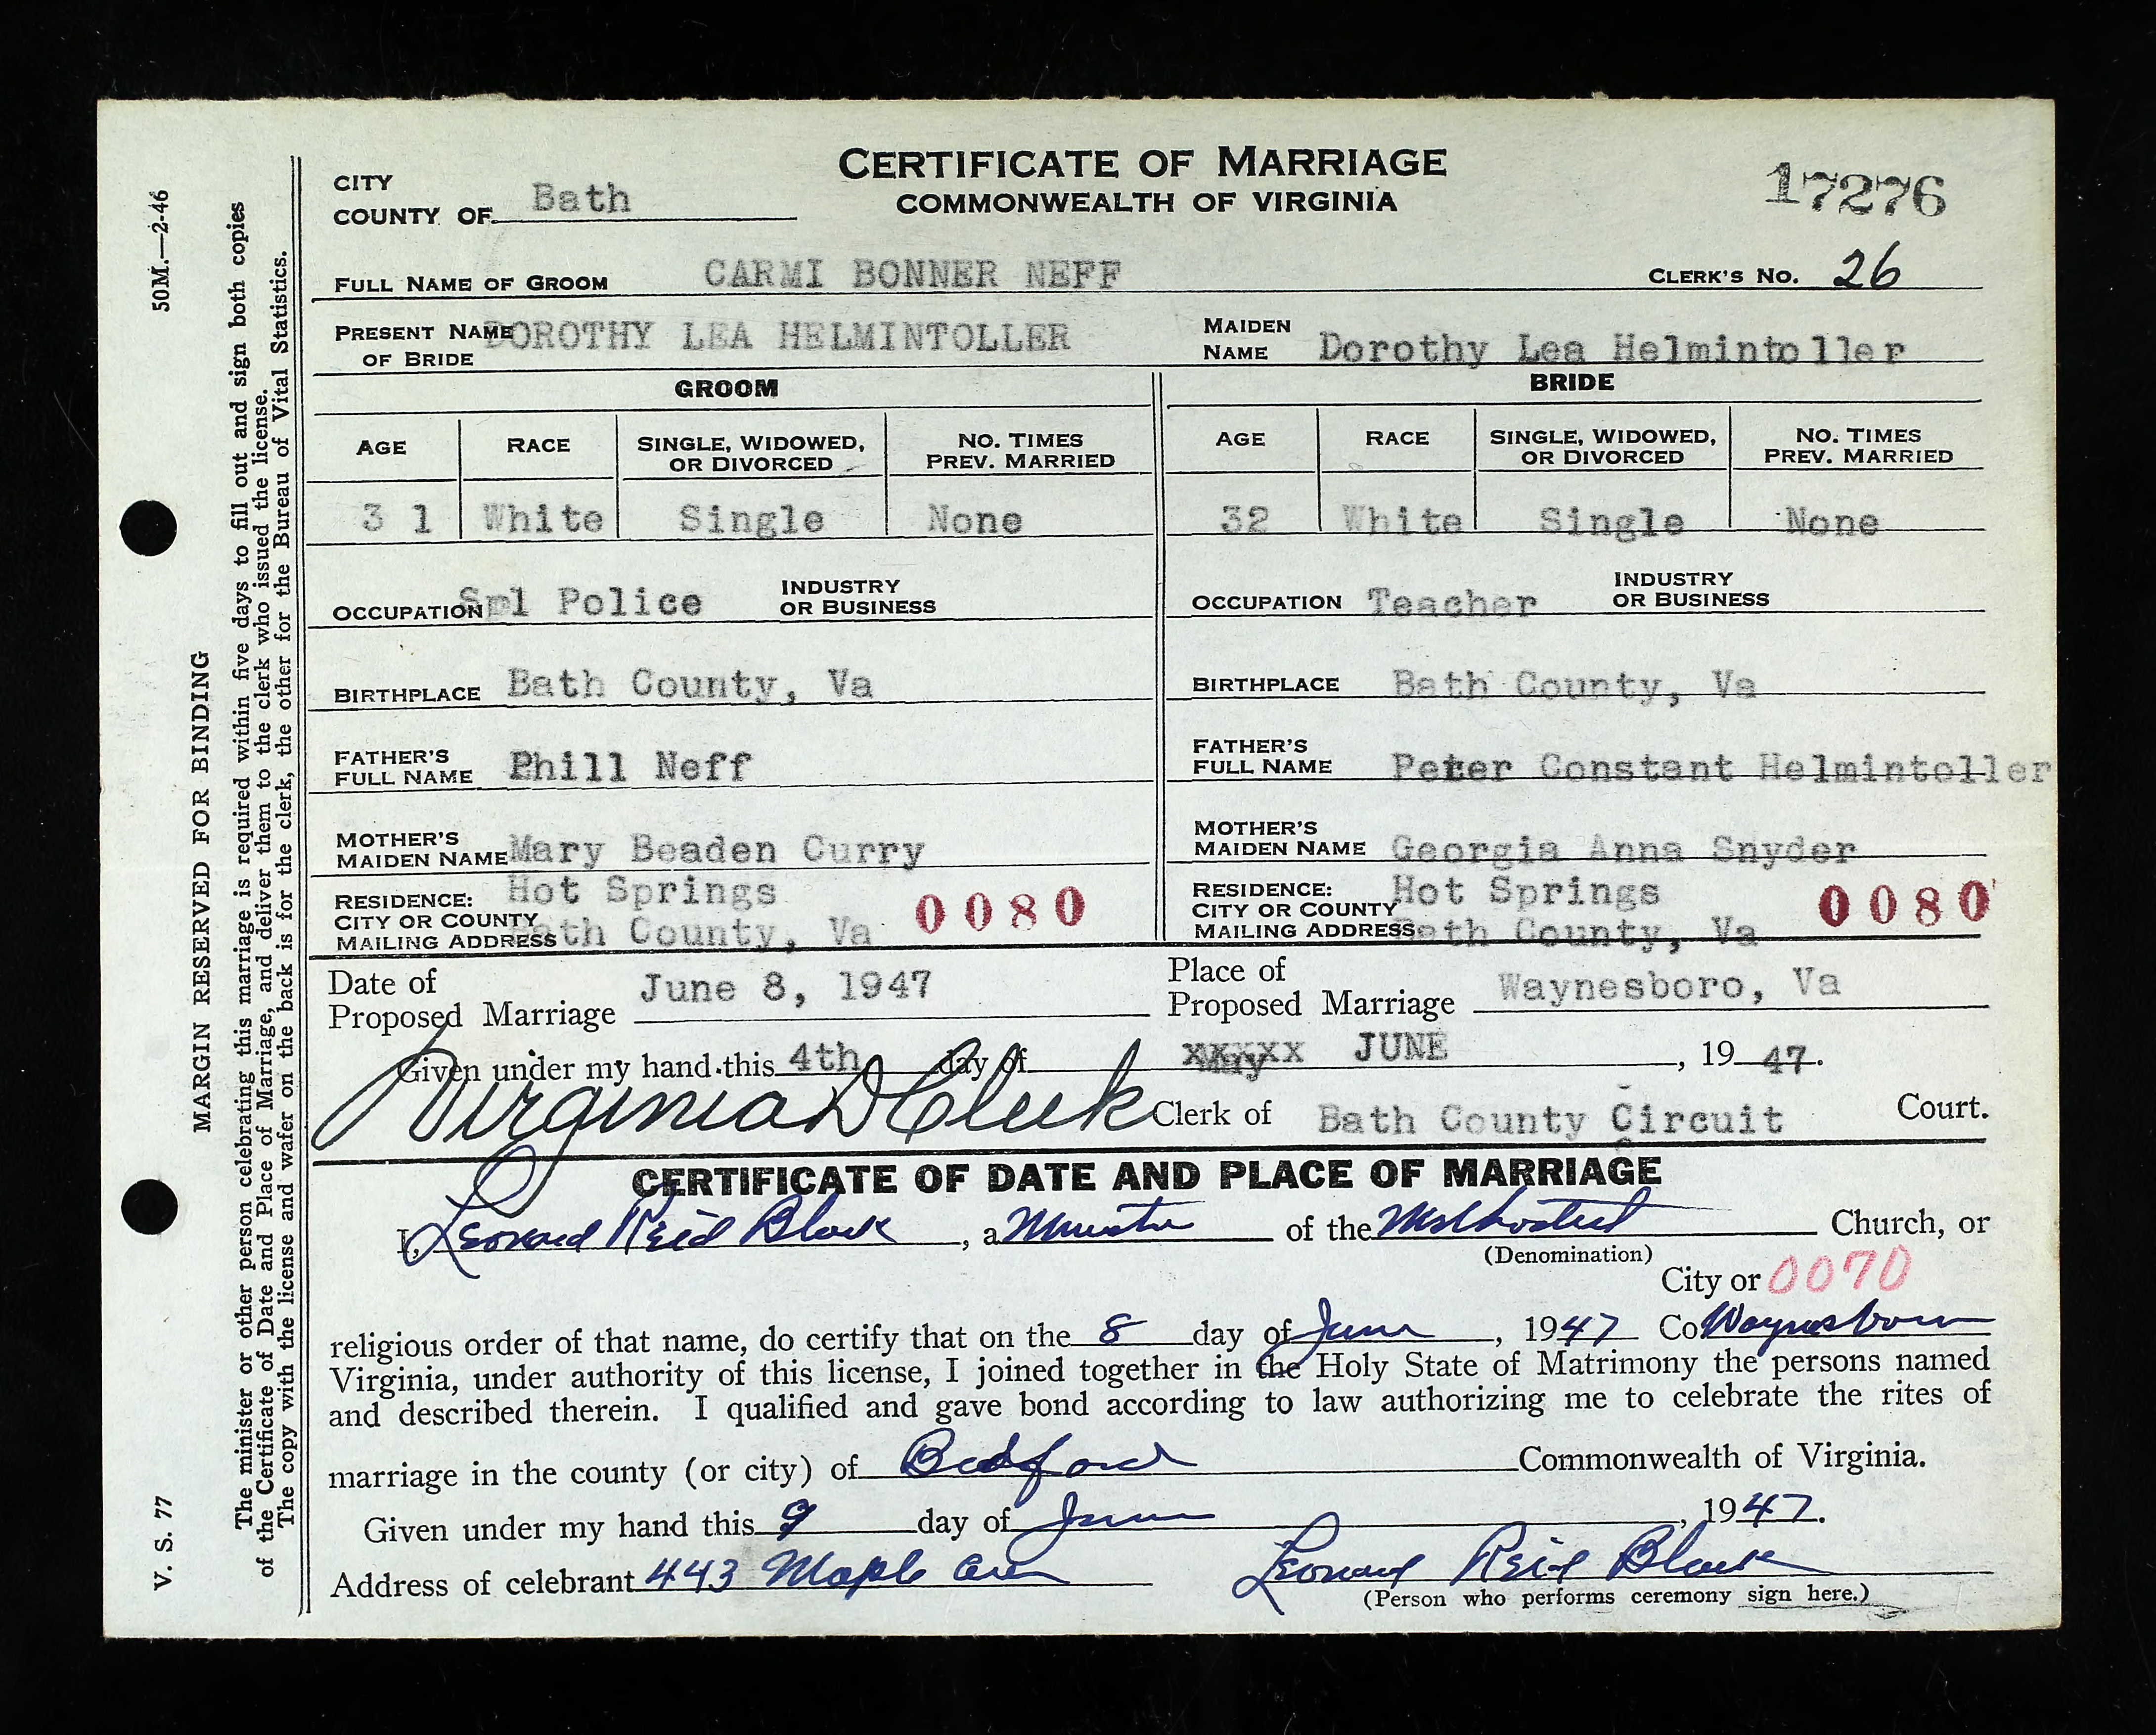 CERTIFICATE OF MARRIAGE
COMMONWEALTH OF VIRGINIA
17276
CITY
COUNTY OF Bath
FULL NAME OF GROOM CARMI BONNER NEFF CLERK'S NO. 26
PRESENT NAME OF BRIDE DOROTHY LEA HELMINTOLLER MAIDEN NAME Dorothy Lea Helmintoller
GROOM BRIDE
AGE RACE SINGLE, WIDOWED, OR DIVORCED NO. TIMES PREV. MARRIED AGE RACE SINGLE, WIDOWED, OR DIVORCED NO. TIMES PREV. MARRIED
31 White Single None 32 White Single None
OCCUPATION Sml Police INDUSTRY OR BUSINESS OCCUPATION Teacher INDUSTRY OR BUSINESS
BIRTHPLACE Bath County, Va BIRTHPLACE Bath County, Va
FATHER'S FULL NAME Phill Neff FATHER'S FULL NAME Peter Constant Helmintoller
MOTHER'S MAIDEN NAME Mary Beaden Curry MOTHER'S MAIDEN NAME Georgia Anna Snyder
RESIDENCE: CITY OR COUNTY MAILING ADDRESS Hot Springs Bath County, Va 0080 RESIDENCE: CITY OR COUNTY MAILING ADDRESS Hot Springs Bath County, Va 0080
Date of Proposed Marriage June 8, 1947 Place of Proposed Marriage Waynesboro, Va
Given under my hand this 4th day of May xxxxx JUNE, 19 47.
Virginia D Cleek Clerk of Bath County Circuit Court.
CERTIFICATE OF DATE AND PLACE OF MARRIAGE
I, Leonard Reid Black, a Minister of the Methodist Church, or
(Denomination)
City or 0070
religious order of that name, do certify that on the 8 day of June, 1947 Co Waynesboro
Virginia, under authority of this license, I joined together in the Holy State of Matrimony the persons named
and described therein. I qualified and gave bond according to law authorizing me to celebrate the rites of
marriage in the county (or city) of Bedford Commonwealth of Virginia.
Given under my hand this 9 day of June, 1947.
Address of celebrant 443 Maple Ave Leonard Reid Black
(Person who performs ceremony sign here.)
V. S. 77 MARGIN RESERVED FOR BINDING 50M.—2-46
The minister or other person celebrating this marriage is required within five days to fill out and sign both copies
of the Certificate of Date and Place of Marriage, and deliver them to the clerk who issued the license.
The copy with the license and wafer on the back is for the clerk, the other for the Bureau of Vital Statistics.